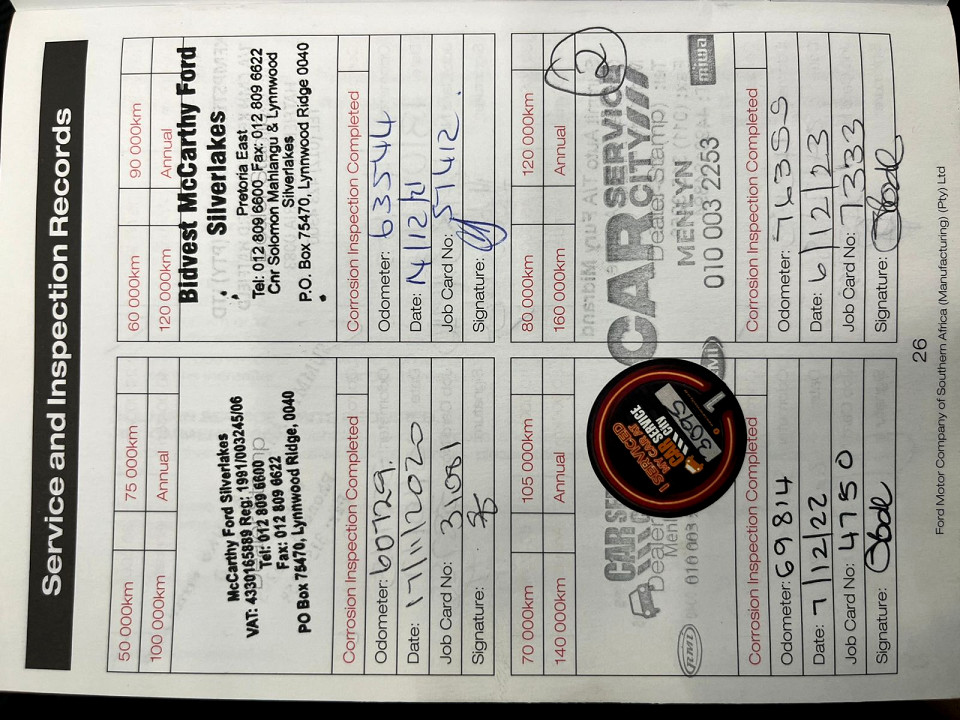 Service and Inspection Records
50 000km
75 000km
100 000km
Annual
McCarthy Ford Silverlakes
VAT: 4330165889 Reg: 1991/003245/06
Tel: 012 809 6600
Fax: 012 809 6622
PO Box 75470, Lynnwood Ridge, 0040
Corrosion Inspection Completed
Odometer: 60729
Date: 17/11/2020
Job Card No: 31001
Signature:
60 000km
90 000km
120 000km
Annual
Bidvest McCarthy Ford
Silverlakes
Pretoria East
Tel: 012 809 6600 Fax: 012 809 6622
Cnr Solomon Mahlangu & Lynnwood
Silverlakes
P.O. Box 75470, Lynnwood Ridge 0040
Corrosion Inspection Completed
Odometer: 63544
Date: 14/12/21
Job Card No: 57412
Signature:
70 000km
105 000km
140 000km
Annual
CAR SE
Dealer
Menl
010 003
RMI
I SERVICED
MY CAR AT
CAR SERVICE
CITY
1
Corrosion Inspection Completed
Odometer: 69814
Date: 7/12/22
Job Card No: 4750
Signature:
80 000km
120 000km
160 000km
Annual
2
CAR SERVICE CITY
Dealer Stamp
MENLYN
010 003 2253
miwa
Corrosion Inspection Completed
Odometer: 76359
Date: 6/12/23
Job Card No: 7333
Signature:
26
Ford Motor Company of Southern Africa (Manufacturing) (Pty) Ltd